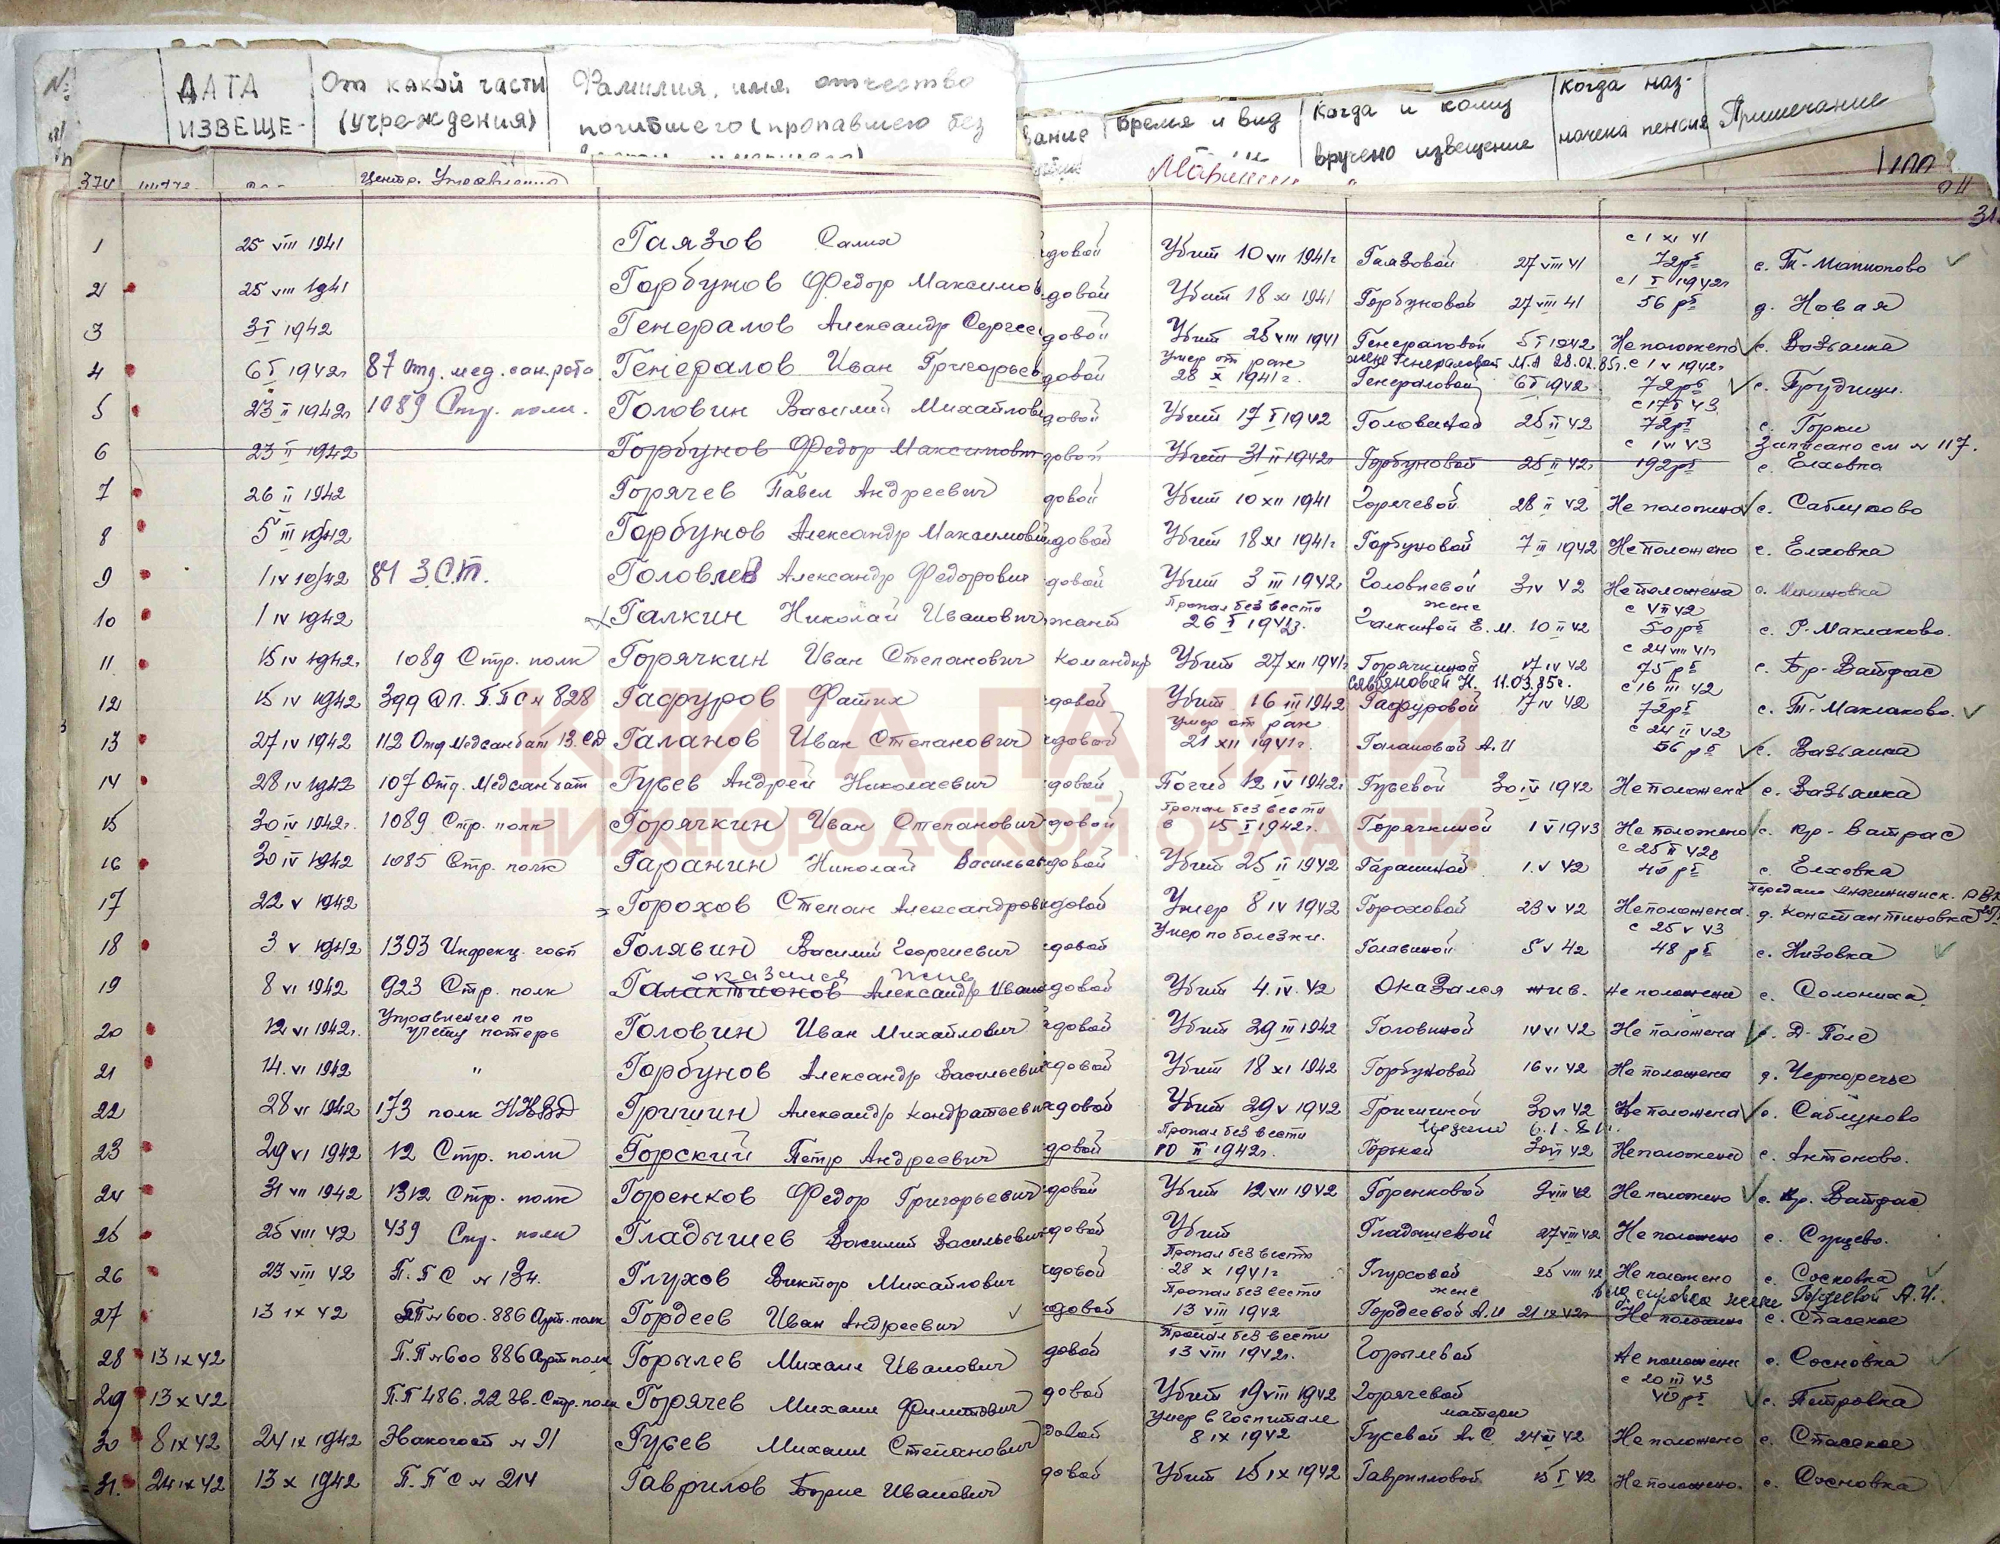 ДАТА ИЗВЕЩЕ-
От какой части (учреждения)
Фамилия, имя, отчество погибшего (пропавшего без
Время и вид
Когда и кому вручено извещение
Когда наз-начена пенсия
Примечание
Центр. Управления
1 25 VIII 1941 Гаязов Салих довой Убит 10 VII 1941г Гаязовой 27 VIII 41 с 1 XI 41 72р с. Т-Маклоково
2 25 VIII 1941 Горбунов Федор Максимов довой Убит 18 XI 1941 Горбуновой 27 VIII 41 с 1 I 1942г 56 р д. Новая
3 3 I 1942 Генералов Александр Сергее довой Убит 25 VIII 1941 Генераловой 5 I 1942 Не положено с. Вазьянка
4 6 I 1942г 87 Отд. мед. сан. рота Генералов Иван Григорьев довой Умер от ран 28 X 1941г. жене Генераловой М.А 28.02.85г. Генераловой 6 I 1942г с 1 V 1942г 72рб с. Грудцин.
5 23 II 1942г 1089 Стр. полк. Головин Василий Михайлови довой Убит 17 I 1942 Головиной 25 II 42 с 17 I 43 72р с. Горки
6 23 II 1942 Горбунов Федор Максимович довой Убит 31 II 1942г Горбуновой 25 II 42г с 1 IV 43 192р Записано см № 117. с. Елховка
7 26 II 1942 Горячев Павел Андреевич довой Убит 10 XII 1941 Горячевой 28 II 42 Не положено с. Саблуково
8 5 III 1942 Горбунов Александр Максимович довой Убит 18 XI 1941г Горбуновой 7 III 1942 Не положено с. Елховка
9 1 IV 1942 81 З.С.П. Головлев Александр Федорович довой Убит 3 III 1942г Головлевой 3 IV 42 Не положена
10 1 IV 1942 Галкин Николай Иванович жант Пропал без вести 26 I 1942г. жене Галкиной Е.М. 10 II 42 с V II 42 50 р с. Р-Маклаково.
11 15 IV 1942г. 1089 Стр. полк Горячкин Иван Степанович Командир Убит 27 XII 1941г Горячкиной 17 IV 42 с 24 VIII 41г 75 р с. Бр-Ватрас
12 15 IV 1942 399 ОП. П.П.С № 828 Гафуров Фатих довой Убит 16 III 1942 Гафуровой 17 IV 42 11.03.85г. с 16 III 42 72р с. Т-Маклаково.
13 27 IV 1942 112 Отд Медсанбат 13. СД Галанов Иван Степанович довой Умер от ран 21 XII 1941г. Галановой А.И с 24 II 42 56 р с. Вазьянка
14 28 IV 1942 107 Отд. Медсанбат Гусев Андрей Николаевич довой Погиб 12 IV 1942г Гусевой 30 IV 1942 Не положена с. Вазьянка
15 30 IV 1942г. 1089 Стр. полк Горячкин Иван Степанович довой Пропал без вести в 15 I 1942г. Горячкиной 1 V 1943 Не положено с. Кр-Ватрас
16 30 IV 1942 1085 Стр. полк Гаранин Николай Васильев довой Убит 25 II 1942 Гараниной 1.V 42 с 25 II 42г 40 р с. Елховка
17 22 V 1942 Горохов Степан Александрови довой Умер 8 IV 1942 Гороховой 23 V 42 Не положена. д. Константиновка
18 3 V 1942 1393 Инфекц. госп Голявин Василий Георгиевич довой Умер по болезни. Голявиной 5 V 42 с 25 V 43 48 р с. Низовка
19 8 VI 1942 923 Стр. полк оказался жив Галактионов Александр Ивано довой Убит 4. IV. 42 Оказался жив. Не положена с. Солониха.
20 12 VI 1942г. Управление по учету потерь Головин Иван Михайлович довой Убит 29 III 1942 Головиной IV VI 42 Не положена с. Д-Поле
21 14. VI 1942 " Горбунов Александр Васильевич довой Убит 18 XI 1942 Горбуновой 16 VI 42 Не положена д. Черноречье
22 28 VI 1942 173 полк НКВД Гришин Александр Кондратьевич довой Убит 29 V 1942 Гришиной 30 VI 42 Не положена с. Саблуково
23 29 VI 1942 12 Стр. полк Горский Петр Андреевич довой Пропал без вести 10 II 1942г. Горской 30 VI 42 Не положена с. Антоново.
24 31 VII 1942 1312 Стр. полк Горенков Федор Григорьевич довой Убит 12 VII 1942 Горенковой 9 VIII 42 Не положено с. Кр. Ватрас
25 25 VIII 42 439 Стр. полк Гладышев Василий Васильевич довой Убит Гладышевой 27 VIII 42 Не положено с. Сущево.
26 23 VIII 42 П.П.С № 134. Глухов Виктор Михайлович довой Пропал без вести 28 X 1941г Глуховой 25 VIII 42 Не положено с. Сосновка
27 13 IX 42 ПП № 600. 886 Арт. полк Гордеев Иван Андреевич довой Пропал без вести 13 VIII 1942 жене Гордеевой А.И 21 IX 42г Не положено с. Спасское
28 13 IX 42 П.П № 600 886 Арт полк Горылев Михаил Иванович довой Пропал без вести 13 VIII 1942г. Горылевой Не положена с. Сосновка
29 13 X 42 П.П 486. 22 Гв. Стр. полк Горячев Михаил Филиппович довой Убит 19 VIII 1942 Горячевой с 20 III 43 40 р с. Петровка
30 8 IX 42 24 IX 1942 Эвакогосп № 91 Гусев Михаил Степанович довой Умер в госпитале 8 IX 1942 матери Гусевой А.С. 24 XI 42 Не положено с. Спасское
31. 24 IX 42 13 X 1942 П.П.С № 214 Гаврилов Борис Иванович довой Убит 15 IX 1942 Гавриловой 15 I 42 Не положено. с. Сосновка
КНИГА ПАМЯТИ
НИЖЕГОРОДСКОЙ ОБЛАСТИ